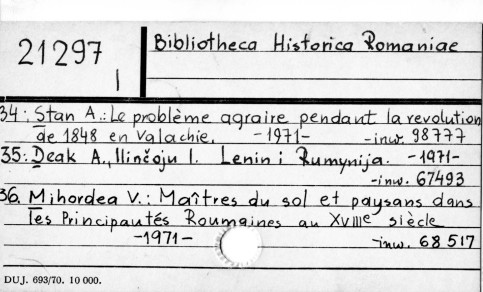 21297
I
Bibliotheca Historica Romaniae
34: Stan A.: Le problème agraire pendant la revolution
de 1848 en Valachie. -1971- -inw. 98777
35: Deak A., Ilinčoju I. Lenin i Rumynija. -1971-
-inw. 67493
36. Mihordea V.: Maîtres du sol et paysans dans
les Principautés Roumaines au XVIIIe siècle
-1971- -inw. 68 517
DUJ. 693/70. 10 000.